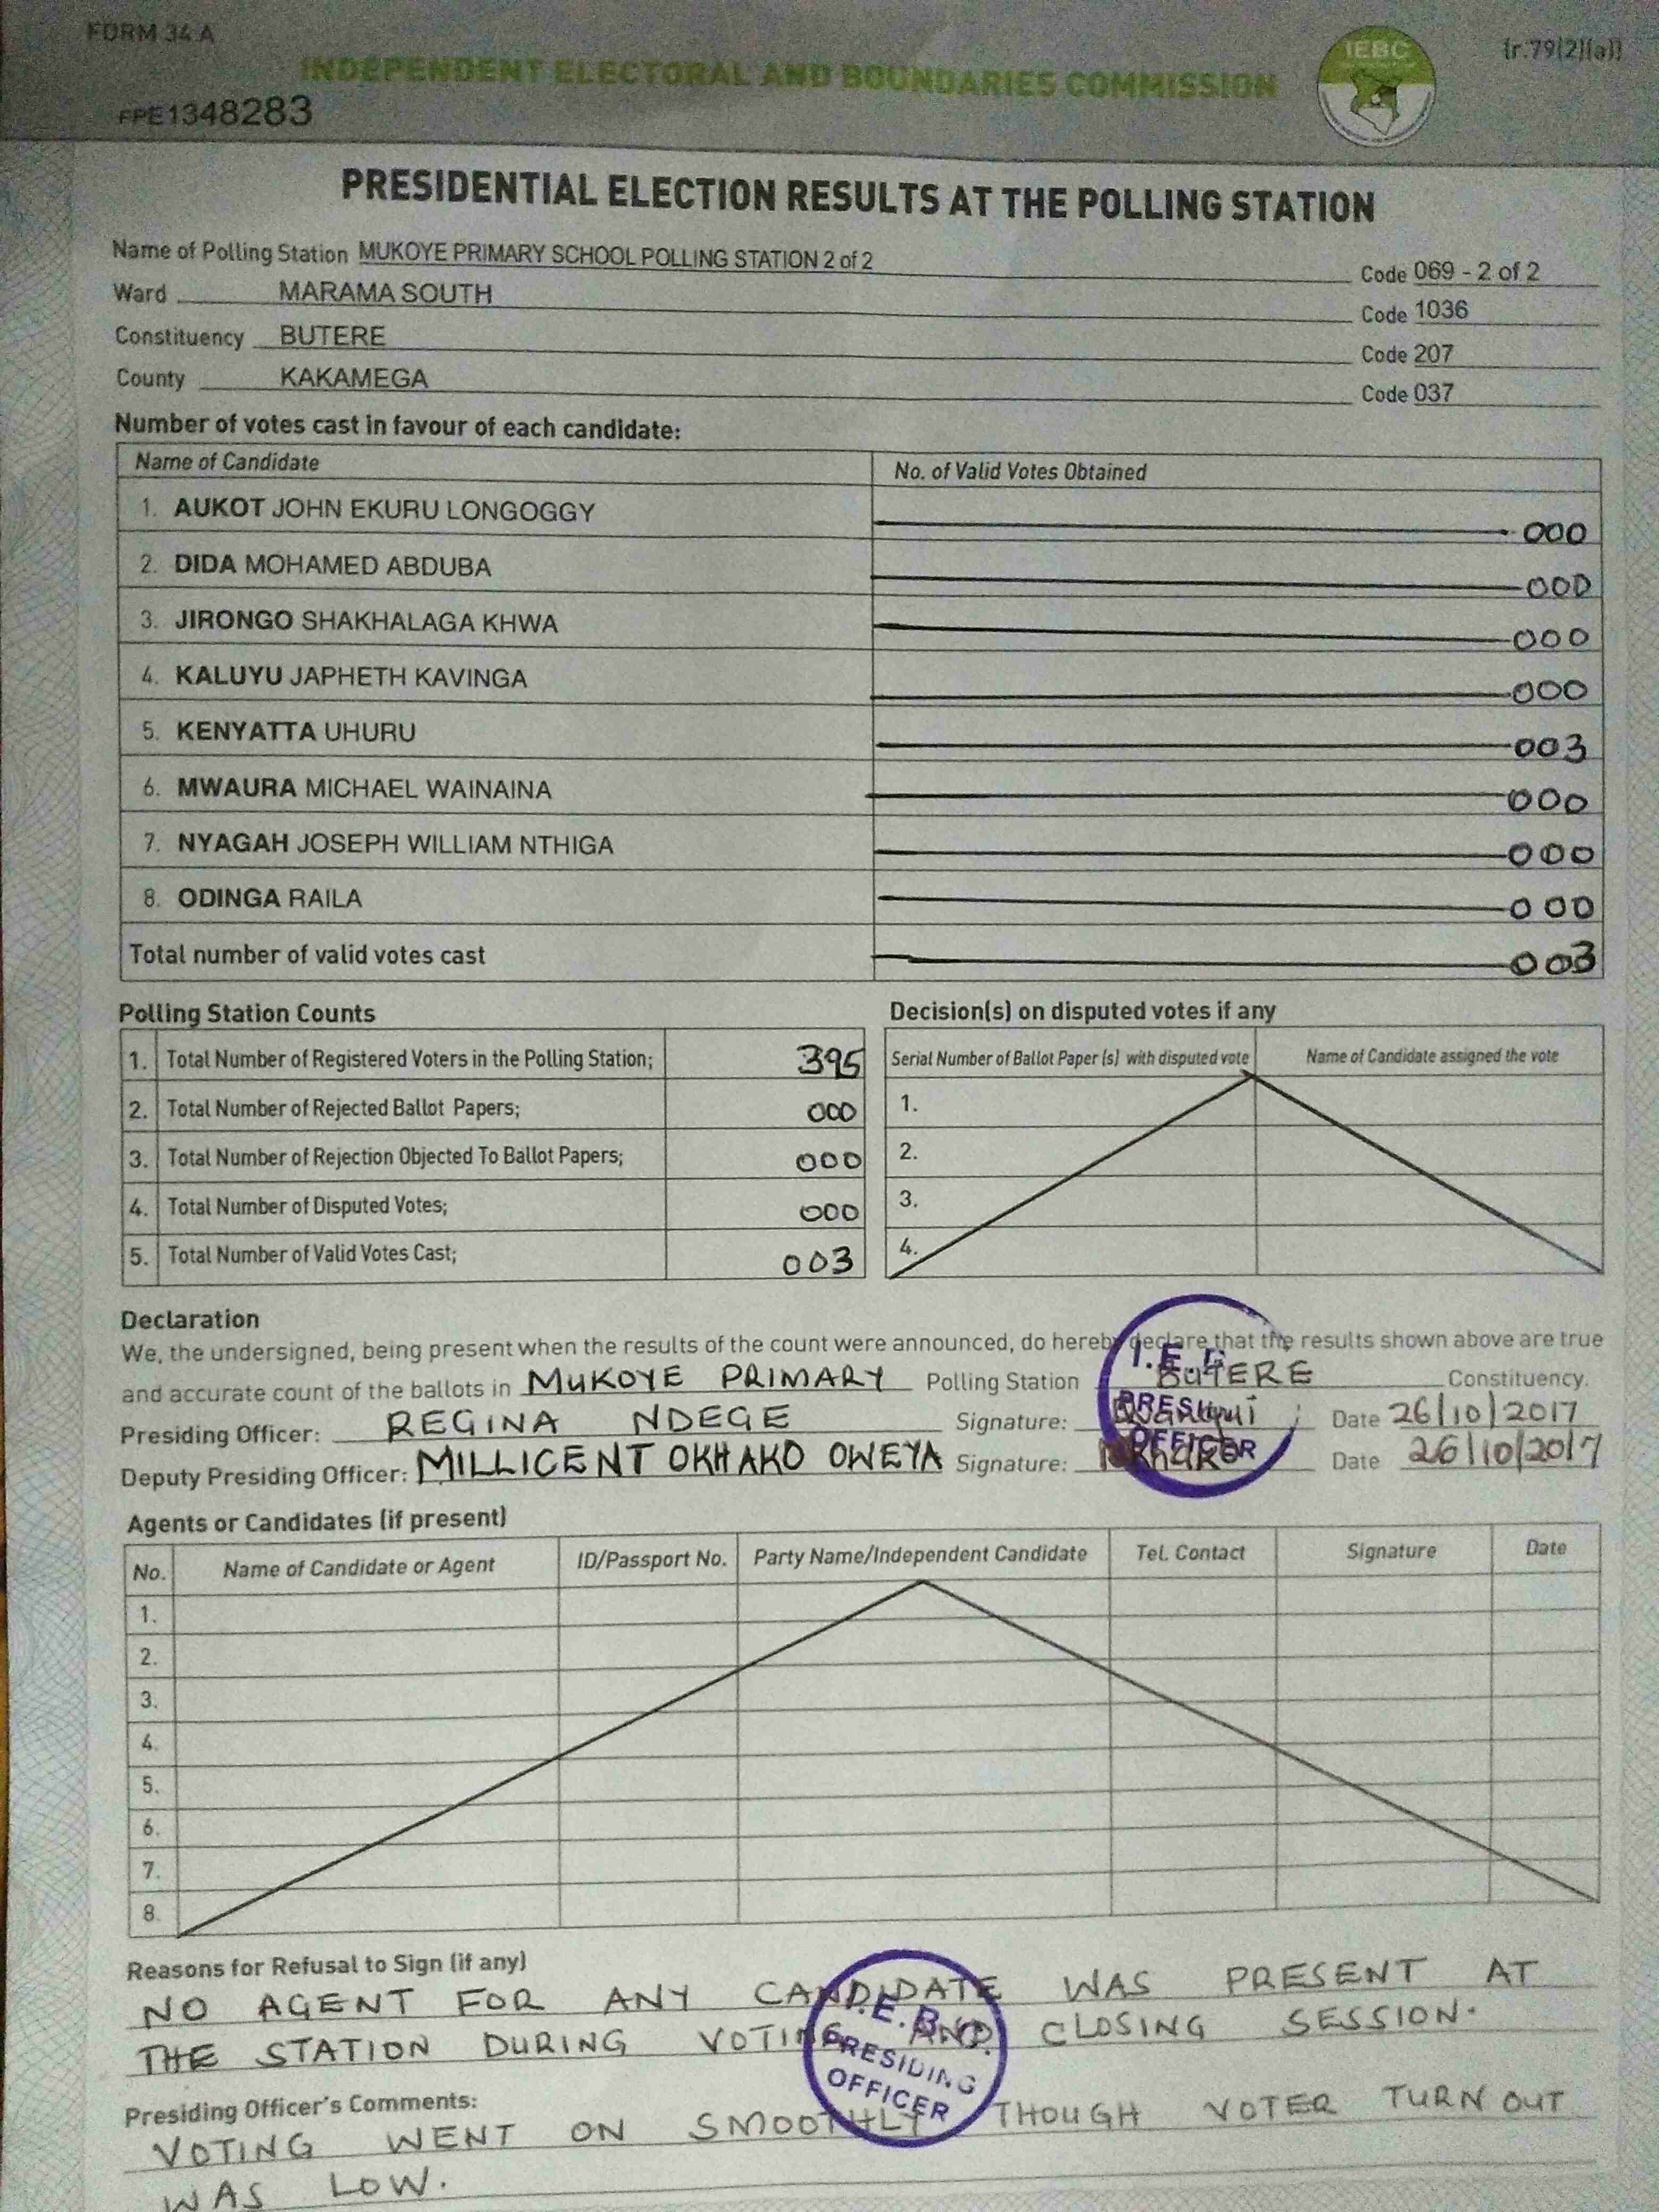 FORM 34 A
(r.79(2)(a))
INDEPENDENT ELECTORAL AND BOUNDARIES COMMISSION
IEBC
FPE1348283
PRESIDENTIAL ELECTION RESULTS AT THE POLLING STATION
Name of Polling Station MUKOYE PRIMARY SCHOOL POLLING STATION 2 of 2 Code 069 - 2 of 2
Ward MARAMA SOUTH Code 1036
Constituency BUTERE Code 207
County KAKAMEGA Code 037
Number of votes cast in favour of each candidate:
Name of Candidate No. of Valid Votes Obtained
1. AUKOT JOHN EKURU LONGOGGY 000
2. DIDA MOHAMED ABDUBA 000
3. JIRONGO SHAKHALAGA KHWA 000
4. KALUYU JAPHETH KAVINGA 000
5. KENYATTA UHURU 003
6. MWAURA MICHAEL WAINAINA 000
7. NYAGAH JOSEPH WILLIAM NTHIGA 000
8. ODINGA RAILA 000
Total number of valid votes cast 003
Polling Station Counts
1. Total Number of Registered Voters in the Polling Station; 395
2. Total Number of Rejected Ballot Papers; 000
3. Total Number of Rejection Objected To Ballot Papers; 000
4. Total Number of Disputed Votes; 000
5. Total Number of Valid Votes Cast; 003
Decision(s) on disputed votes if any
Serial Number of Ballot Paper (s) with disputed vote Name of Candidate assigned the vote
1.
2.
3.
4.
Declaration
We, the undersigned, being present when the results of the count were announced, do hereby declare that the results shown above are true
and accurate count of the ballots in MUKOYE PRIMARY Polling Station BUTERE Constituency.
Presiding Officer: REGINA NDEGE Signature: Date 26/10/2017
Deputy Presiding Officer: MILLICENT OKHAKO OWEYA Signature: Date 26/10/2017
Agents or Candidates (if present)
No. Name of Candidate or Agent ID/Passport No. Party Name/Independent Candidate Tel. Contact Signature Date
1.
2.
3.
4.
5.
6.
7.
8.
Reasons for Refusal to Sign (if any)
NO AGENT FOR ANY CANDIDATE WAS PRESENT AT
THE STATION DURING VOTING AND CLOSING SESSION.
I.E.B.C.
PRESIDING
OFFICER
Presiding Officer's Comments:
VOTING WENT ON SMOOTHLY THOUGH VOTER TURN OUT
WAS LOW.